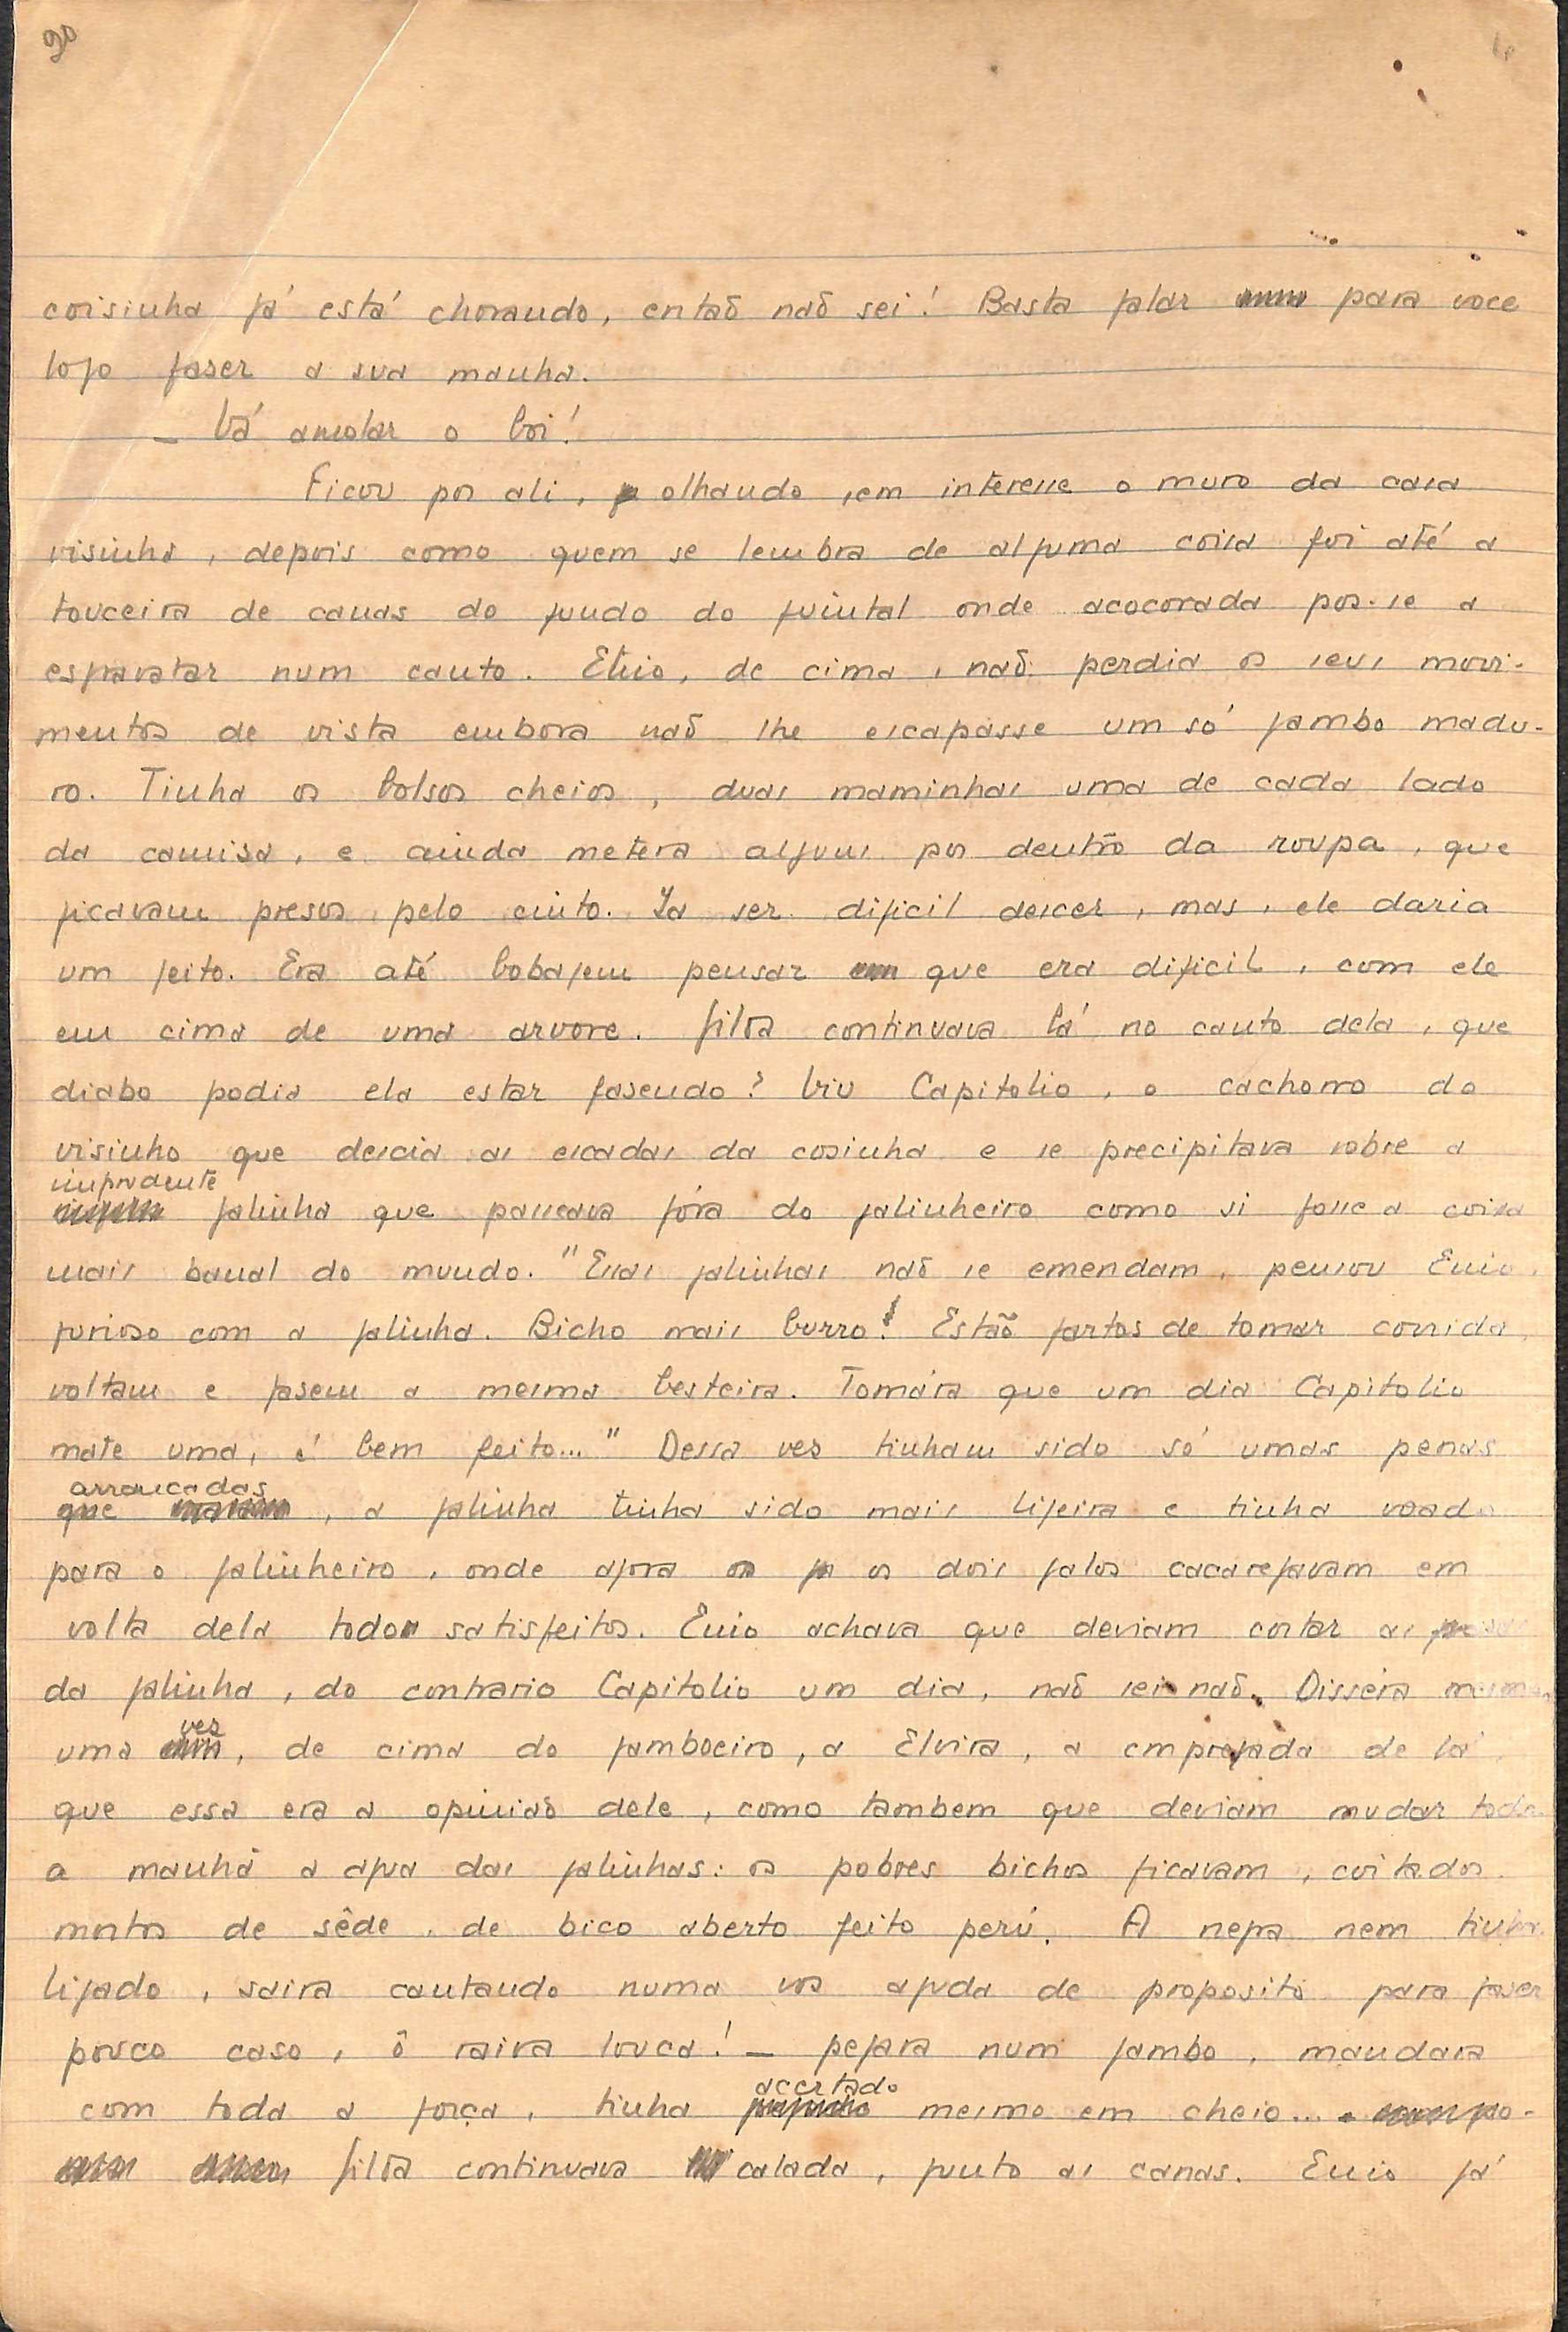 20
coisinha já está chorando, então não sei! Basta falar para voce
logo faser a sua manha.
— Vá amolar o boi!
Ficou por ali, olhando sem interesse o muro da casa
visinha, depois como quem se lembra de alguma coisa foi até a
touceira de canas do fundo do quintal onde acocorada pos-se a
esgravatar num canto. Enio, de cima, não perdia os seus movi-
mentos de vista embora não lhe escapasse um só jambo madu-
ro. Tinha os bolsos cheios, duas maminhas uma de cada lado
da camisa, e ainda metera alguns por dentro da roupa, que
ficavam presos pelo cinto. Ia ser dificil descer, mas, ele daria
um jeito. Era até bobagem pensar que era dificil, com ele
em cima de uma arvore. Gilda continuava lá no canto dela, que
diabo podia ela estar fasendo? Viu Capitolio, o cachorro do
visinho que descia as escadas da cosinha e se precipitava sobre a
imprudente
galinha que passeava fóra do galinheiro como si fosse a coisa
mais banal do mundo. "Essas galinhas não se emendam, pensou Enio,
furioso com a galinha. Bicho mais burro! Estão fartos de tomar corrida,
voltam e fasem a mesma besteira. Tomára que um dia Capitolio
mate uma, é bem feito..." Dessa ves tinham sido só umas penas
arrancadas
, a galinha tinha sido mais ligeira e tinha voado
para o galinheiro, onde agora os dois galos cacarejavam em
volta dela todos satisfeitos. Enio achava que deviam cortar as
da galinha, do contrario Capitolio um dia, não sei não. Disséra mesmo
ves
uma, de cima do jamboeiro, a Elvira, a empregada de lá,
que essa era a opinião dele, como tambem que deviam mudar toda
a manhã a agua das galinhas: os pobres bichos ficavam, coitados
mortos de sêde, de bico aberto feito perú. A nega nem tinha
ligado, saira cantando numa vos aguda de proposito para faser
pouco caso, ô raiva louca! — pegara num jambo, mandara
com toda a força, tinha
acertado
mesmo em cheio...
Gilda continuava calada, junto as canas. Enio já